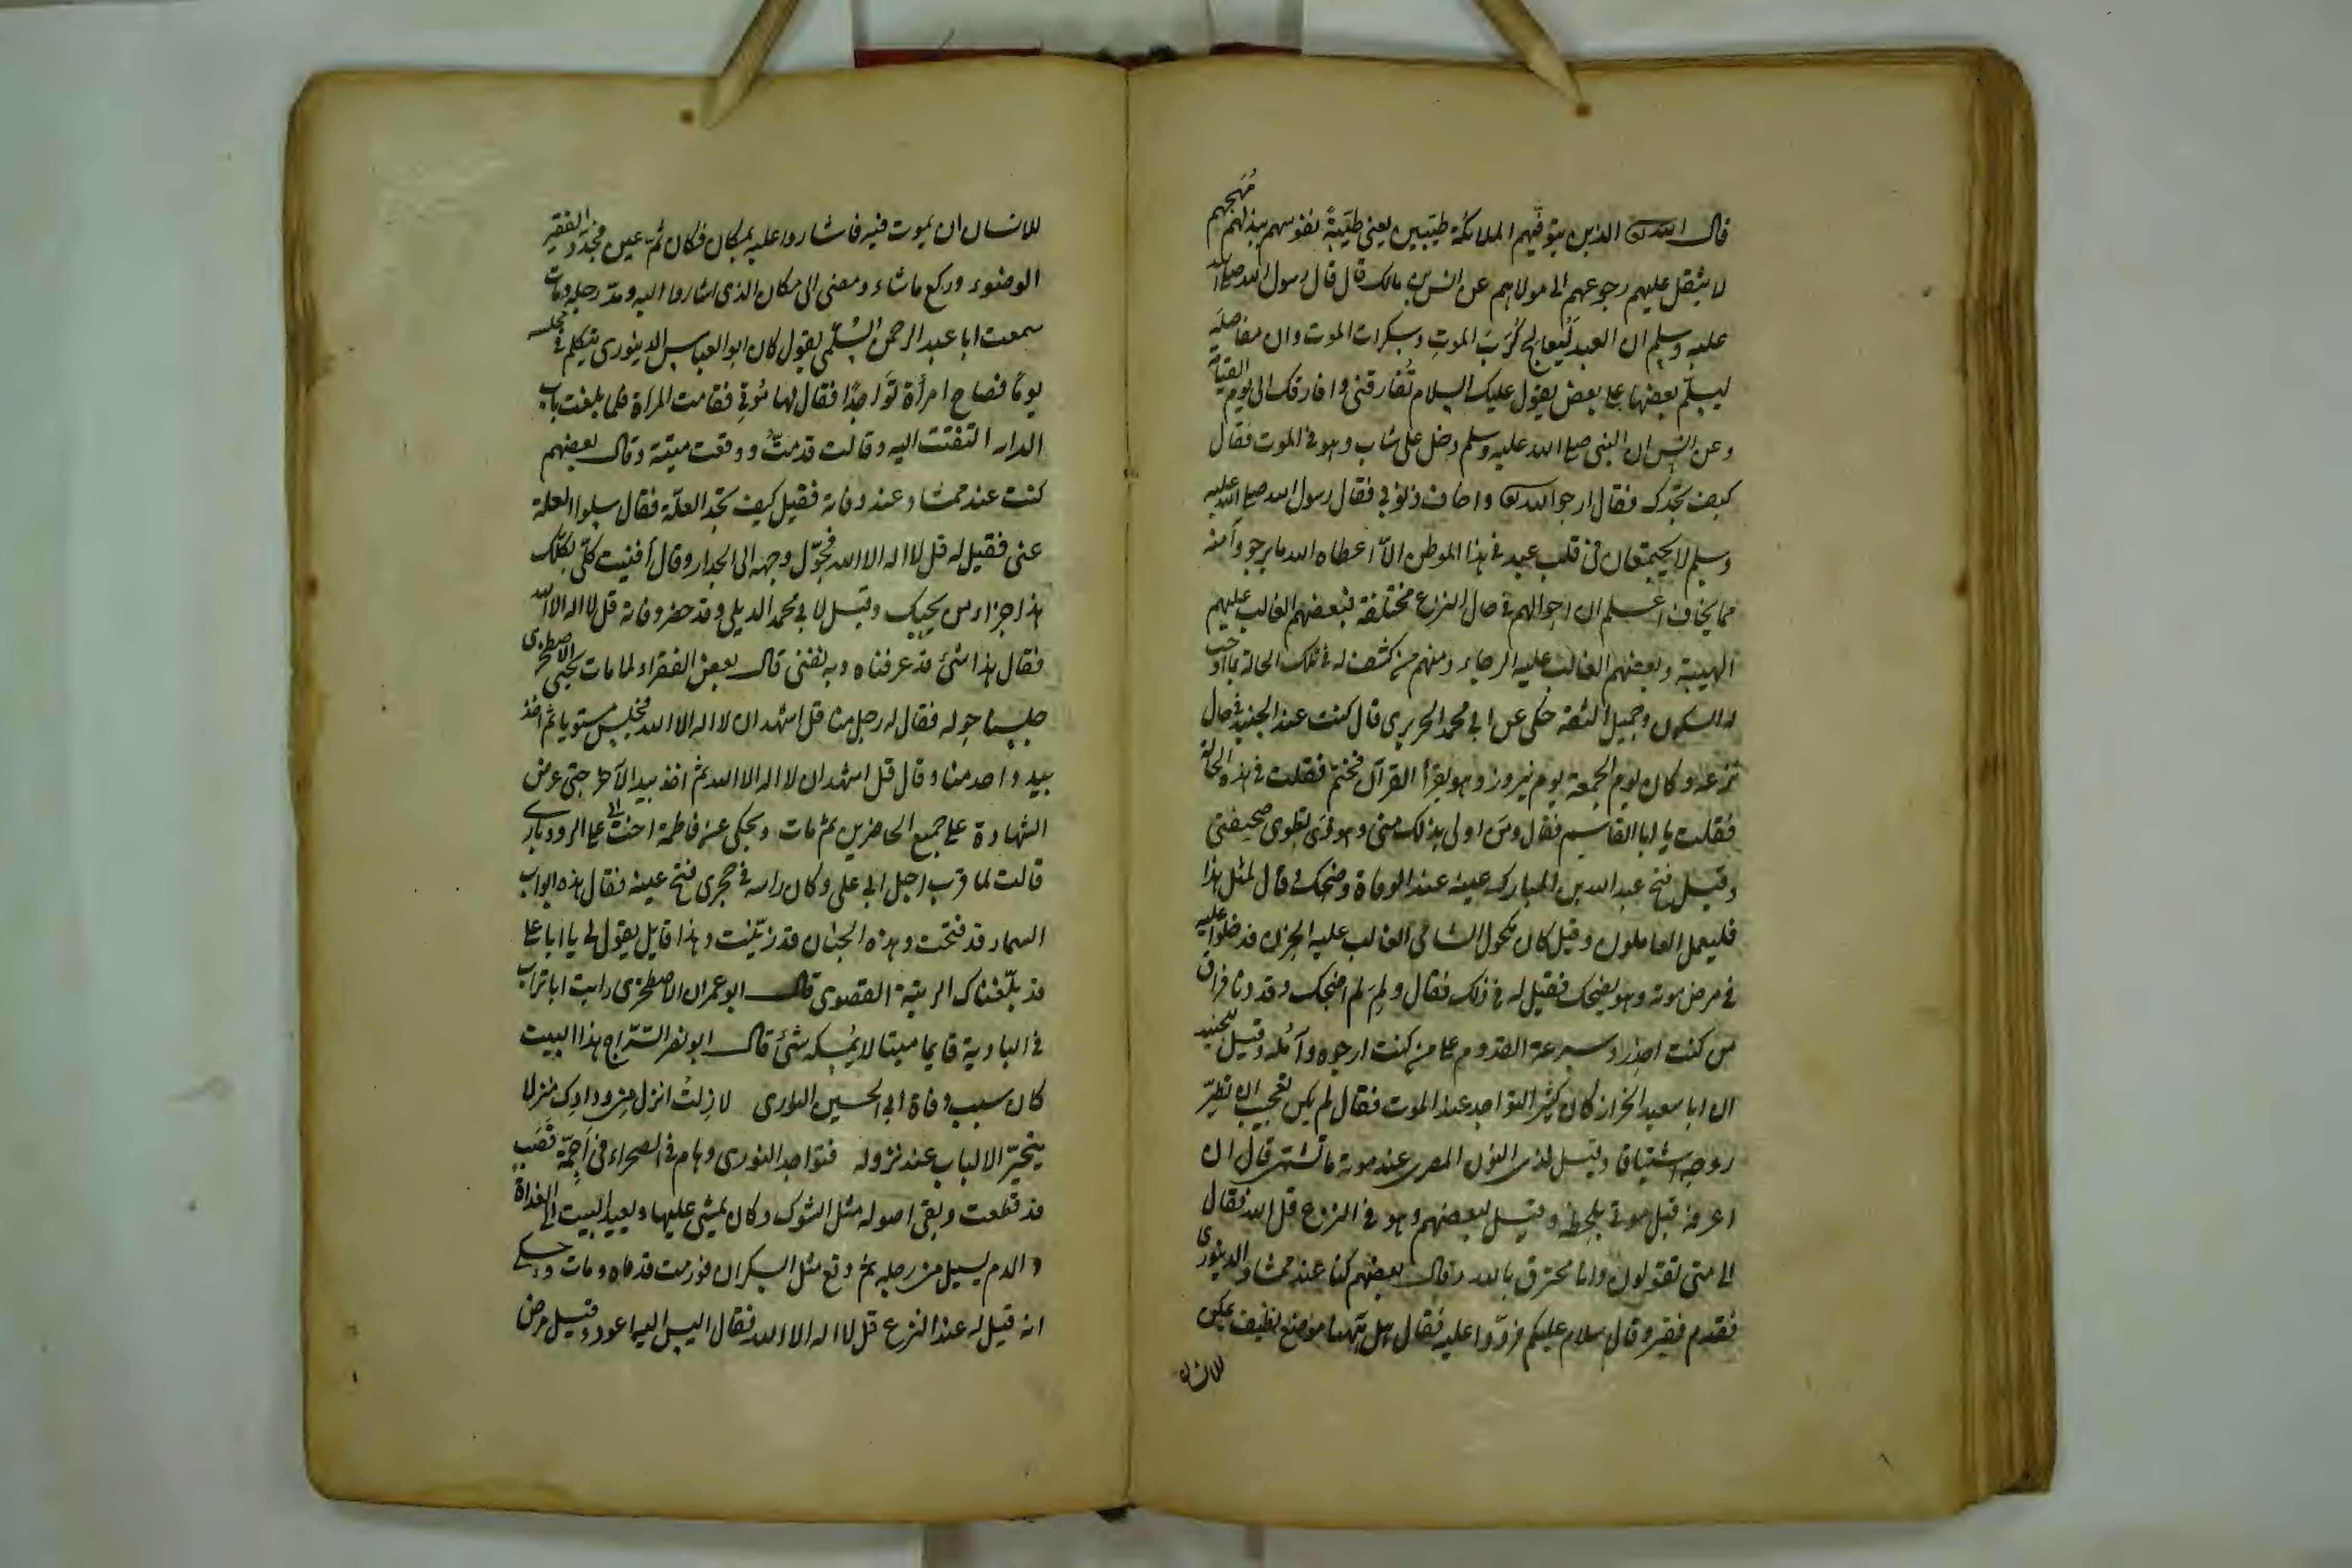 قال الله تعالى الذين يتوفيهم الملائكة طيبين يعني طيبةً نفوسهم ببذلهم مُهَجهم
لا يثقل عليهم رجوعهم الى مولاهم عن انس بن مالك قال قال رسول الله صلى الله
عليه وسلم ان العبد لَيعالج كُرَبَ الموتِ وسكرات الموت وان مفاصلَه
ليسلّم بعضها على بعض يقول عليك السلام تُفارقني وافارقك الى يوم القيمة
وعن انس ان النبي صلى الله عليه وسلم دخل على شاب وهو في الموت فقال
كيف تجدك فقال ارجو الله تعالى واخاف ذنوبي فقال رسول الله صلى الله عليه
وسلم لا يجتمعان في قلب عبد في هذا الموطن الّا اعطاه الله ما يرجو وآمنه
مما يخاف اعلم ان احوالهم في حال النزع مختلفة فبعضهم الغالب عليهم
الهيبة وبعضهم الغالب عليه الرجاء ومنهم من كشف له في تلك الحالة ما اوجب
له السكون وجميل الثقة حكى عن ابي محمد الجريرى قال كنت عند الجنيد في حال
نزعه وكان يوم الجمعة يوم نيروز وهو يقرأ القرآن فختم فقلت في هذه الحالة
فقلت يا ابا القاسم فقال ومَن اولى بذلك منى وهو ذَى تطوى صحيفتي
وقيل فتح عبد الله بن المبارك عينه عند الوفاة وضحك وقال لمثل هذا
فليعمل العاملون وقيل كان مكحول الشامى الغالب عليه الحزن فدخلوا عليه
في مرض موته وهو يضحك فقيل له في ذلك فقال ولِمَ لم اضحك وقد دنا فراق
من كنت احذر وسرعة القدوم على من كنت ارجوه وآمُله وقيل للجنيد
ان ابا سعيد الخراز كان كثير التواجد عند الموت فقال لم يكن تعجب ان تطير
روحه اشتياقا وقيل لذى النون المصرى عند موته ما تشتهى قال ان
اعرفه قبل موتى بلحظة وقيل لبعضهم وهو في النزع قل الله فقال
الى متى تقولون وانا محترق بالله وقال بعضهم كنا عند ممشاد الدينورى
فقدم فقير وقال سلام عليكم فردّوا عليه فقال هل ههنا موضع نظيف يمكن
للانسان
للانسان ان يموت فيه فاشاروا عليه بمكان فكان ثَمَّ عين فجدّد الفقير
الوضوء وركع ماشاء ومضى الى مكان الذى اشاروا اليه ومدّ رجليه ومات
سمعت ابا عبد الرحمن السُّلَمى يقول كان ابو العباس الدينورى يتكلم في مجلسه
يومًا فصاح امرأة تواجدًا فقال لها مُوتي فقامت المرأة فلما بلغت باب
الدار التفتت اليه وقالت قد متُّ ووقعت ميتة وقال بعضهم
كنت عند ممشاد عند وفاته فقيل كيف تجد العلّة فقال سلوا العلة
عنى فقيل له قل لا اله الا الله فحوّل وجهه الى الجدار وقال أفنيت كلّى بكلّك
هذا جزاء من يحبك وقيل لابي محمد الدبيلى وقد حضر وفاته قل لا اله الا الله
فقال هذا شئ قد عرفناه وبه نفنى قال بعض الفقراء لما مات يحيى الاصطخرى
جلسنا حوله فقال له رجل منا قل اشهد ان لا اله الا الله فجلس مستويا ثم اخذ
بيد واحد منا وقال قل اشهد ان لا اله الا الله ثم اخذ بيد الآخر حتى عرض
الشهادة على جميع الحاضرين ثم مات ويحكى عن فاطمة اخت ابى على الرودبارى
قالت لما قرب اجل ابى على وكان راسه في حجرى فتح عينه فقال هذه ابواب
السماء قد فتحت وهذه الجنان قد زيّنت وهذا قايل يقول لى يا ابا على
قد بلّغناك الرتبة القصوى قال ابو عمران الاصطخرى رايت ابا تراب
في البادية قايما ميتا لا يُمسكه شئ قال ابو نصر السرّاج هذا البيت
كان سبب وفاة ابى الحسين النورى لا زلتُ انزل من ودادك منزلا
يتحيّر الالباب عند نزوله فتواجد النورى وهام في الصحراء في اَجَمَة قصب
قد قطعت وبقى اصوله مثل الشوك وكان يمشى عليها ويعيد البيت الى الغداة
والدم يسيل من رجليه ثم وقع مثل السكران فورمت قدماه ومات وحكى
انه قيل له عند النزع قل لا اله الا الله فقال اليس اليه اعود وقيل مرض